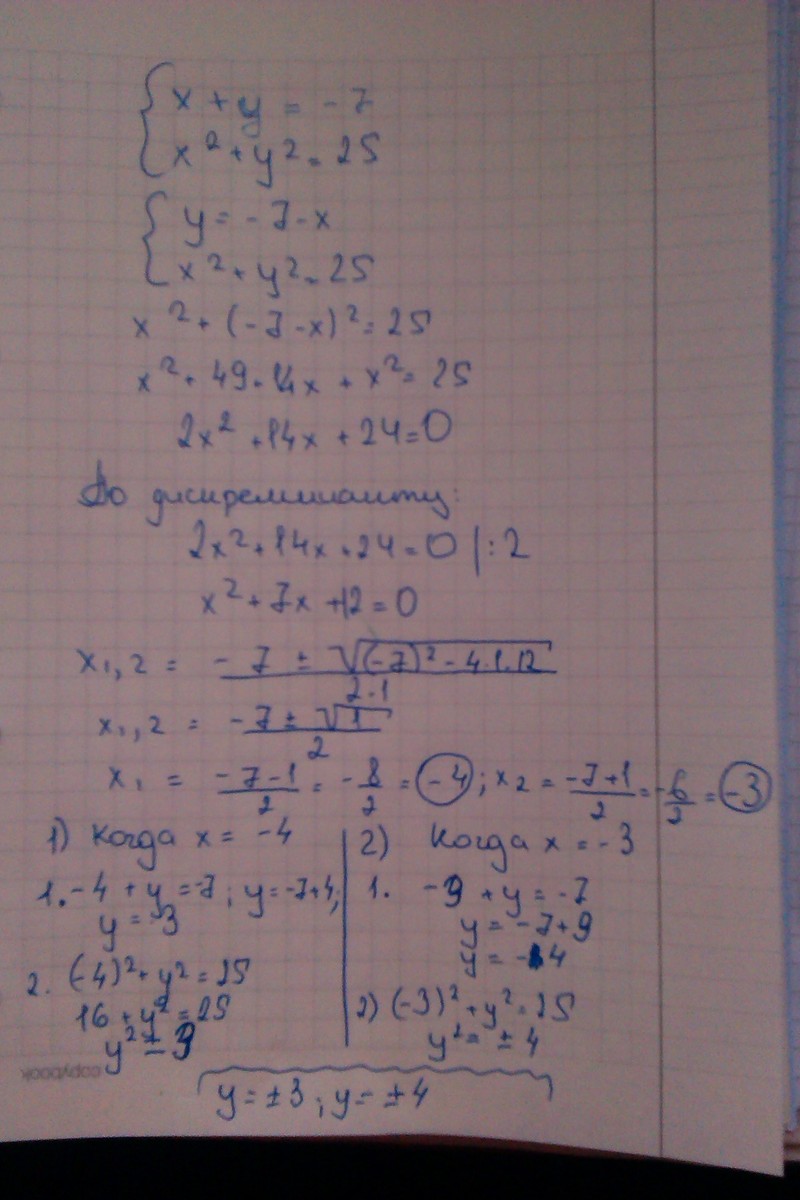 { x + y = -7
x² + y² = 25
{ y = -7 - x
x² + y² = 25
x² + (-7 - x)² = 25
x² + 49 + 14x + x² = 25
2x² + 14x + 24 = 0
По дискреминанту:
2x² + 14x + 24 = 0 | : 2
x² + 7x + 12 = 0
x₁,₂ = (-7 ± √((-7)² - 4·1·12)) / (2·1)
x₁,₂ = (-7 ± √1) / 2
x₁ = (-7-1)/2 = -8/2 = -4 ; x₂ = (-7+1)/2 = -6/2 = -3
1) Когда x = -4
1. -4 + y = -7 ; y = -7+4;
y = -3
2. (-4)² + y² = 25
16 + y² = 25
y² = 9
2) Когда x = -3
1. -9 + y = -7
y = -7+9
y = -4
2) (-3)² + y² = 25
y² = ±4
y = ±3 ; y = ±4
copybook